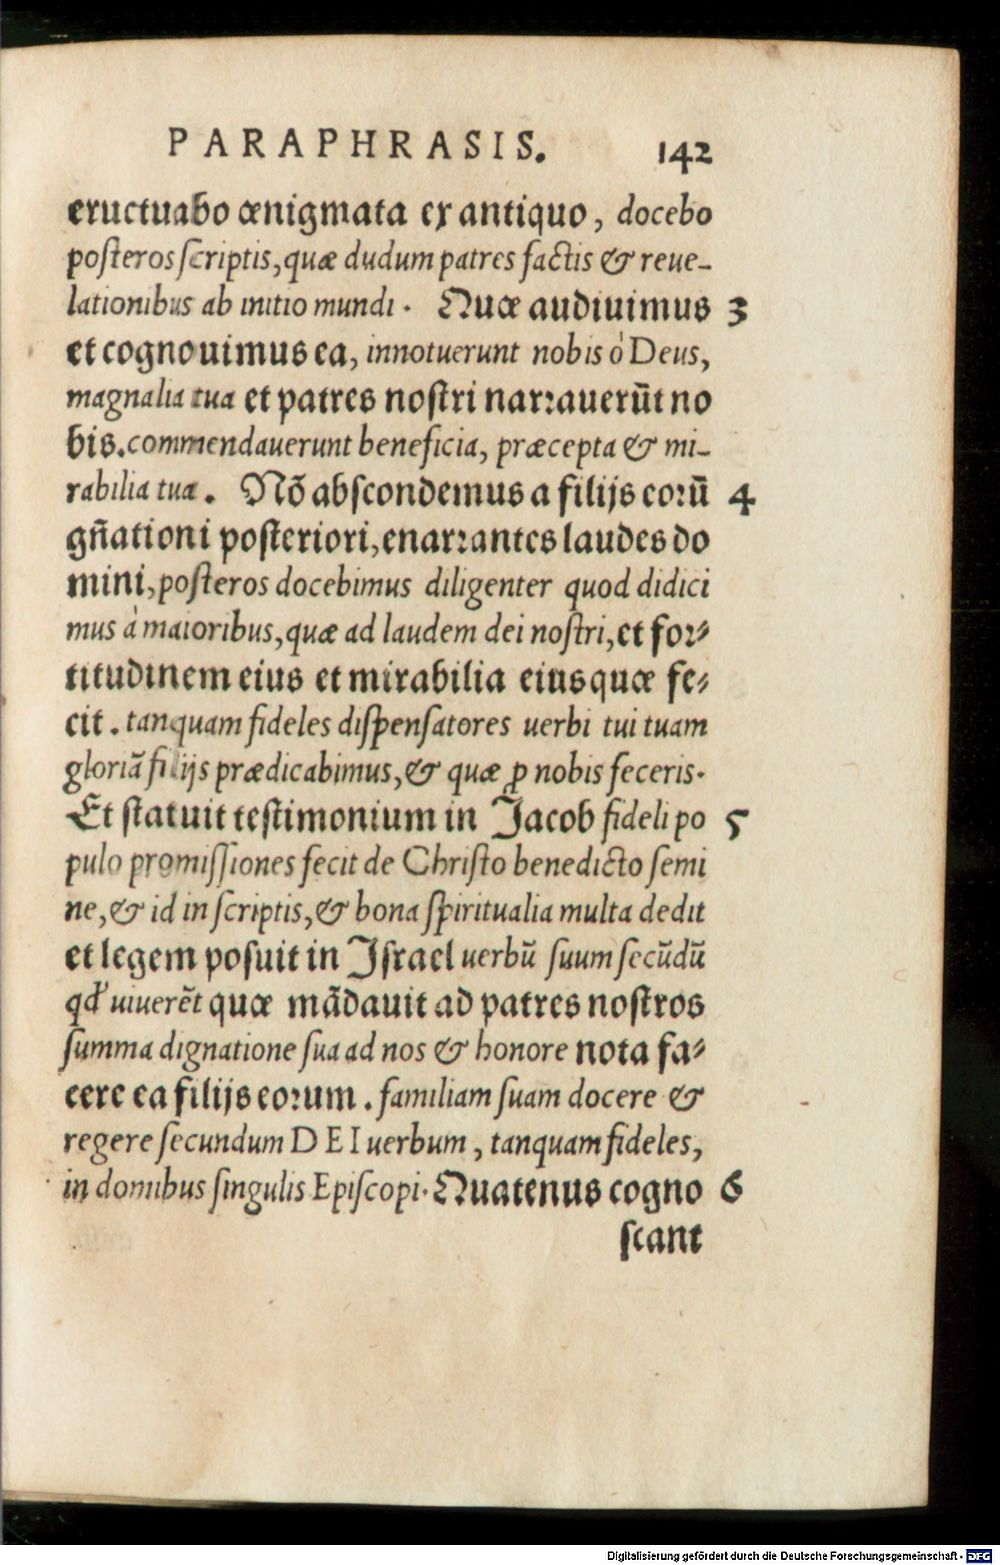 PARAPHRASIS. 142
eructuabo œnigmata ex antiquo, docebo
posteros scriptis, quæ dudum patres factis & reue-
lationibus ab initio mundi. Quæ audiuimus 3
et cognouimus ea, innotuerunt nobis ò Deus,
magnalia tua et patres nostri narrauerūt no
bis. commendauerunt beneficia, præcepta & mi-
rabilia tua. Nō abscondemus a filijs eorū 4
gn̄ationi posteriori, enarrantes laudes do
mini, posteros docebimus diligenter quod didici
mus à maioribus, quæ ad laudem dei nostri, et for-
titudinem eius et mirabilia eius quæ fe-
cit. tanquam fideles dispensatores uerbi tui tuam
gloriā filijs prædicabimus, & quæ ꝓ nobis feceris.
Et statuit testimonium in Jacob fideli po 5
pulo promissiones fecit de Christo benedicto semi
ne, & id in scriptis, & bona spiritualia multa dedit
et legem posuit in Israel uerbū suum secūdū
qđ uiuerēt quæ mādauit ad patres nostros
summa dignatione sua ad nos & honore nota fa-
cere ea filijs eorum. familiam suam docere &
regere secundum DEI uerbum, tanquam fideles,
in domibus singulis Episcopi. Quatenus cogno 6
scant
Digitalisierung gefördert durch die Deutsche Forschungsgemeinschaft - DFG